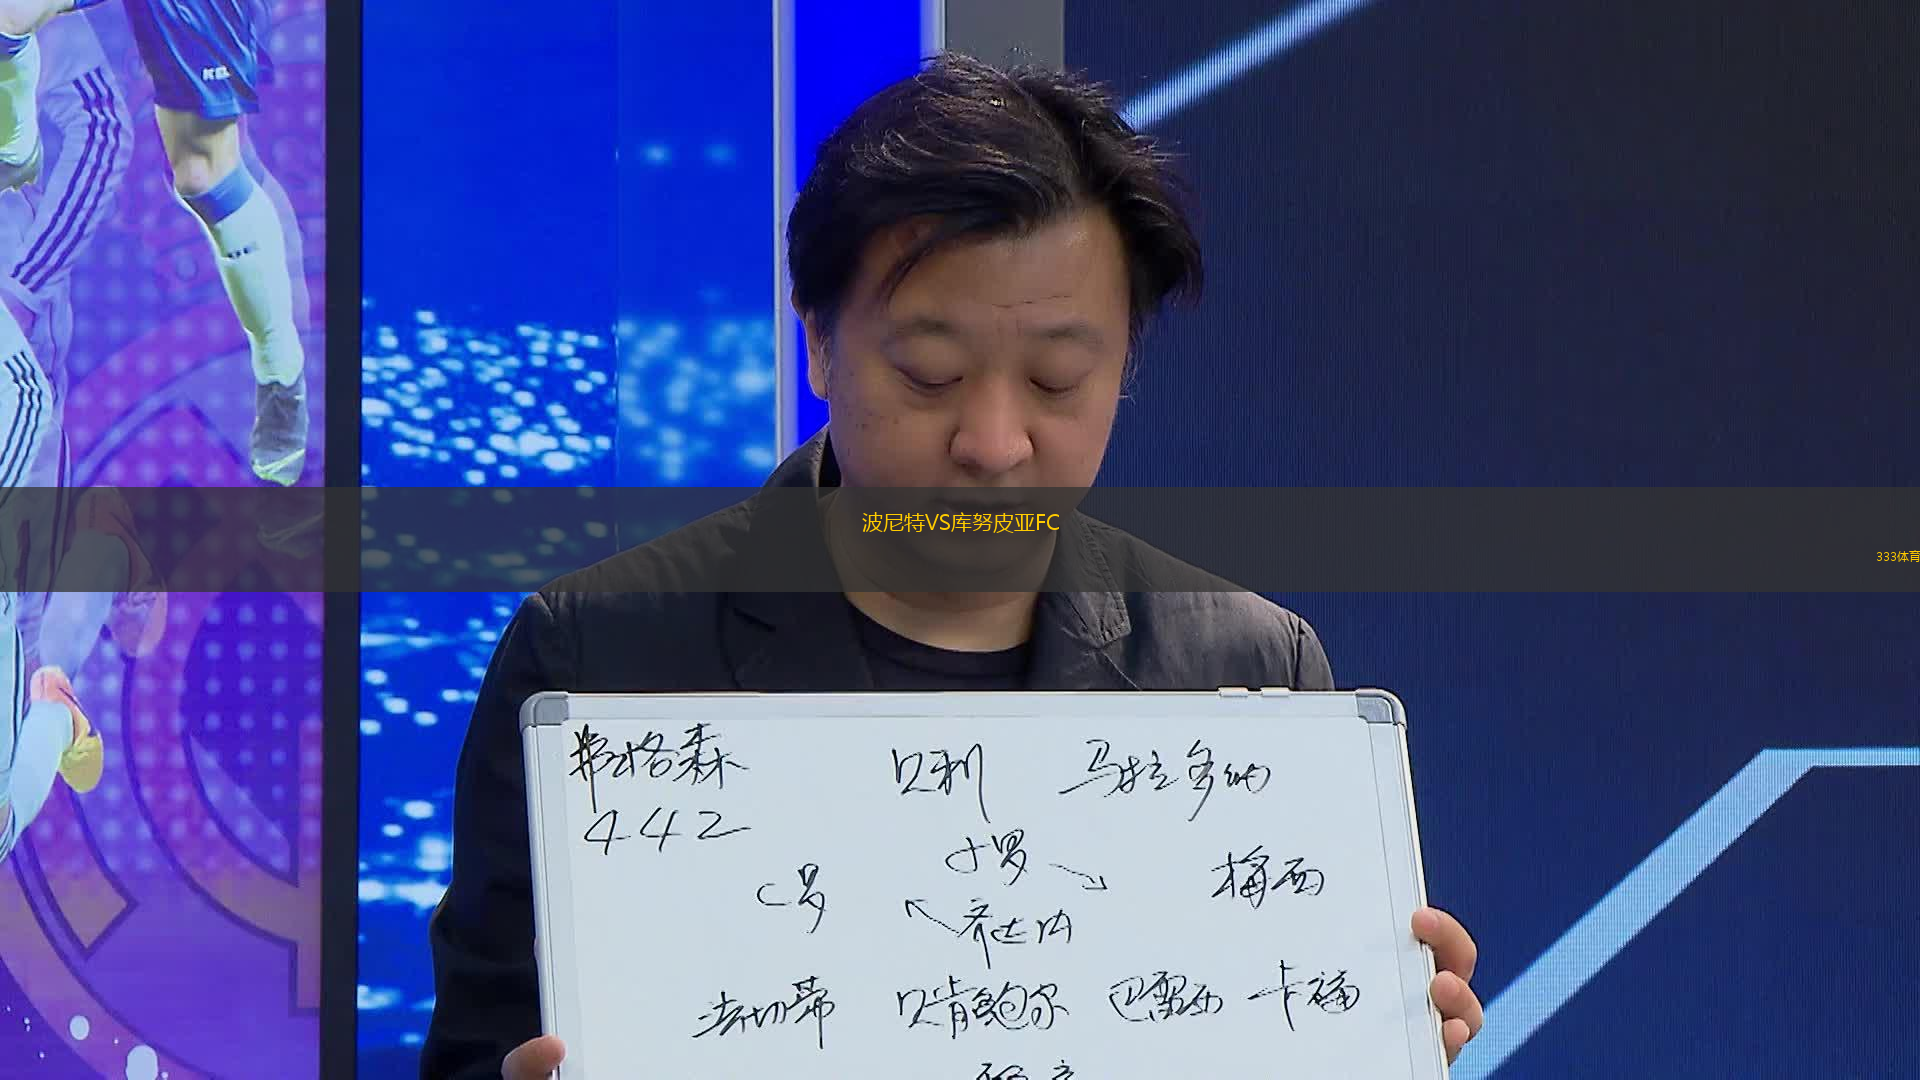 KEL
波尼特VS库努皮亚FC
333体育
弗格森 贝利 马拉多纳
442
小罗
C罗 梅西
齐达内
法切蒂 贝肯鲍尔 巴雷西 卡福